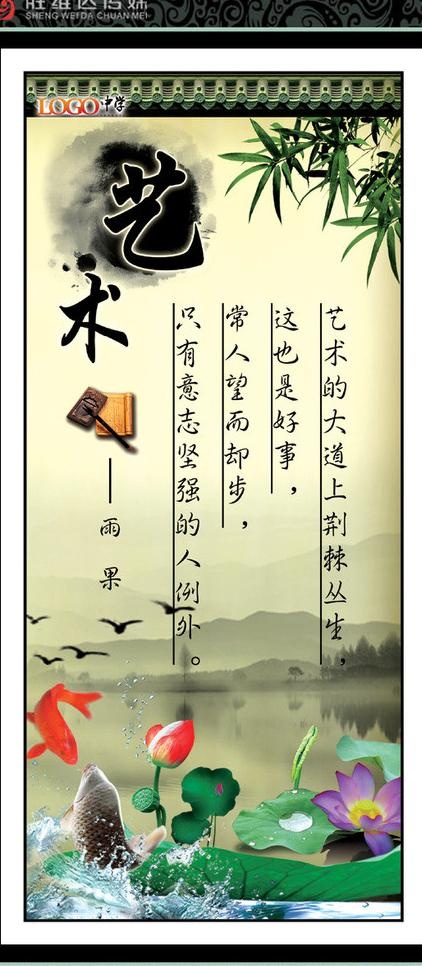 胜维达传媒
SHENG WEIDA CHUAN MEI
LOGO中学
艺术
艺术的大道上荆棘丛生，
这也是好事，
常人望而却步，
只有意志坚强的人例外。
——雨果